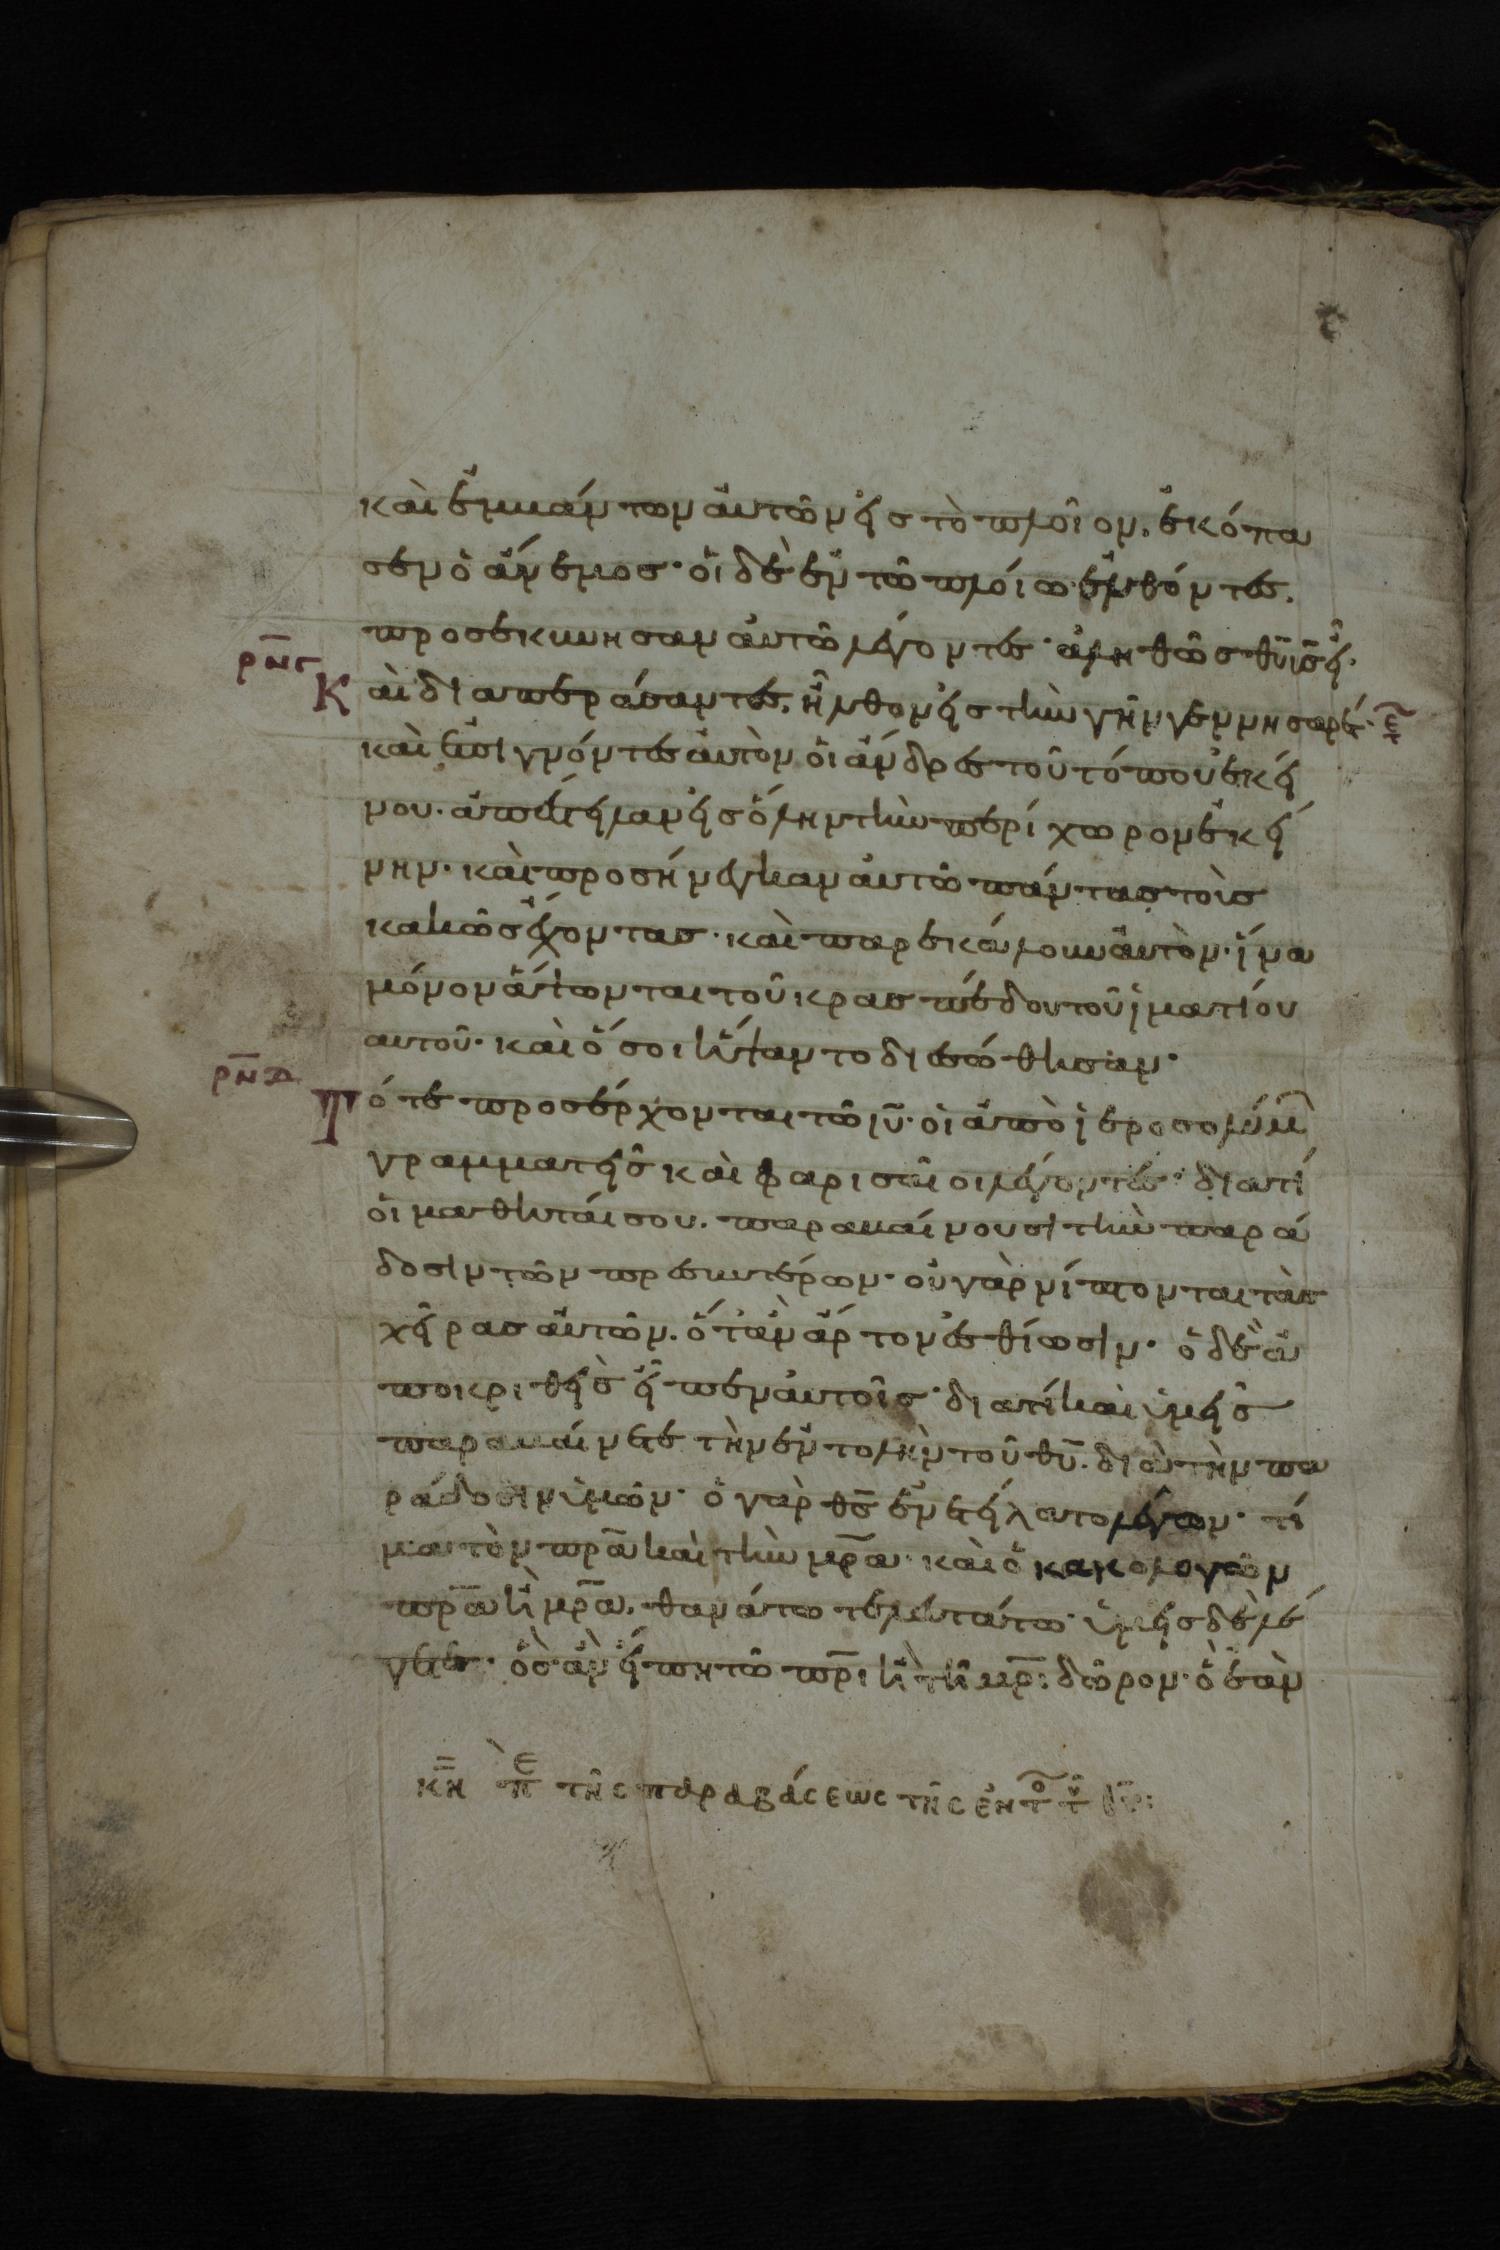 καὶ ἐμβάντων αὐτῶν εἰς τὸ πλοῖον. ἐκόπα
σεν ὁ ἄνεμος· οἱ δὲ ἐν τῶ πλοίω ἐλθόντες.
προσεκύνησαν αὐτῶ λέγοντες· ἀληθῶς θ̅υ̅ υ̅ς̅ εἶ·
ρ̅ν̅ς̅ Καὶ διαπεράσαντες. ἦλθον εἰς τὴν γῆν γεννησαρέτ·
καὶ ἐπιγνόντες αὐτὸν οἱ ἄνδρες τοῦ τόπου ἐκεί
νου. ἀπέστειλαν εἰς ὅλην τὴν περίχωρον ἐκεί
νην· καὶ προσήνεγκαν αὐτῶ πάντας τοὺς
κακῶς ἔχοντας· καὶ παρεκάλουν αὐτὸν· ἵνα
μόνον ἅψωνται τοῦ κρασπέδου τοῦ ἱματίου
αὐτοῦ· καὶ ὅσοι ἥψαντο διεσώθησαν·
ρ̅ν̅δ̅ Τότε προσέρχονται τῶ ι̅υ̅· οἱ ἀπὸ ἱεροσολύμ
γραμματεῖς καὶ φαρισαῖοι λέγοντες· διατί
οἱ μαθηταί σου. παραβαίνουσι τὴν παρά
δοσιν τῶν πρεσβυτέρων· οὐ γὰρ νίπτονται τὰς
χεῖρας αὐτῶν. ὅταν ἄρτον ἐσθίωσιν· ὁ δὲ ἀ
ποκριθεὶς εἶπεν αὐτοῖς· διατί καὶ ὑμεῖς
παραβαίνετε τὴν ἐντολὴν τοῦ θ̅υ̅. διὰ τὴν πα
ράδοσιν ὑμῶν· ὁ γὰρ θ̅ς̅ ἐνετείλατο λέγων· τί
μα τὸν π̅ρ̅α̅ καὶ τὴν μ̅ρ̅α̅· καὶ ὁ κακολογῶν
π̅ρ̅α̅ ἢ μ̅ρ̅α̅. θανάτω τελευτάτω· ὑμεῖς δὲ λέ
γετε· ὃς ἂν εἴπη τῶ π̅ρ̅ι̅ ἢ τῆ μ̅ρ̅ι̅ δῶρον· ὃ ἐὰν
τῆς παραβάσεως τῆς